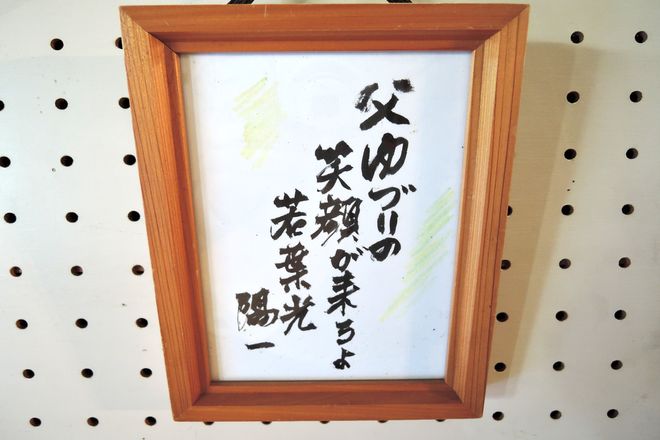 父ゆづりの
笑顔が来るよ
若葉光
陽一